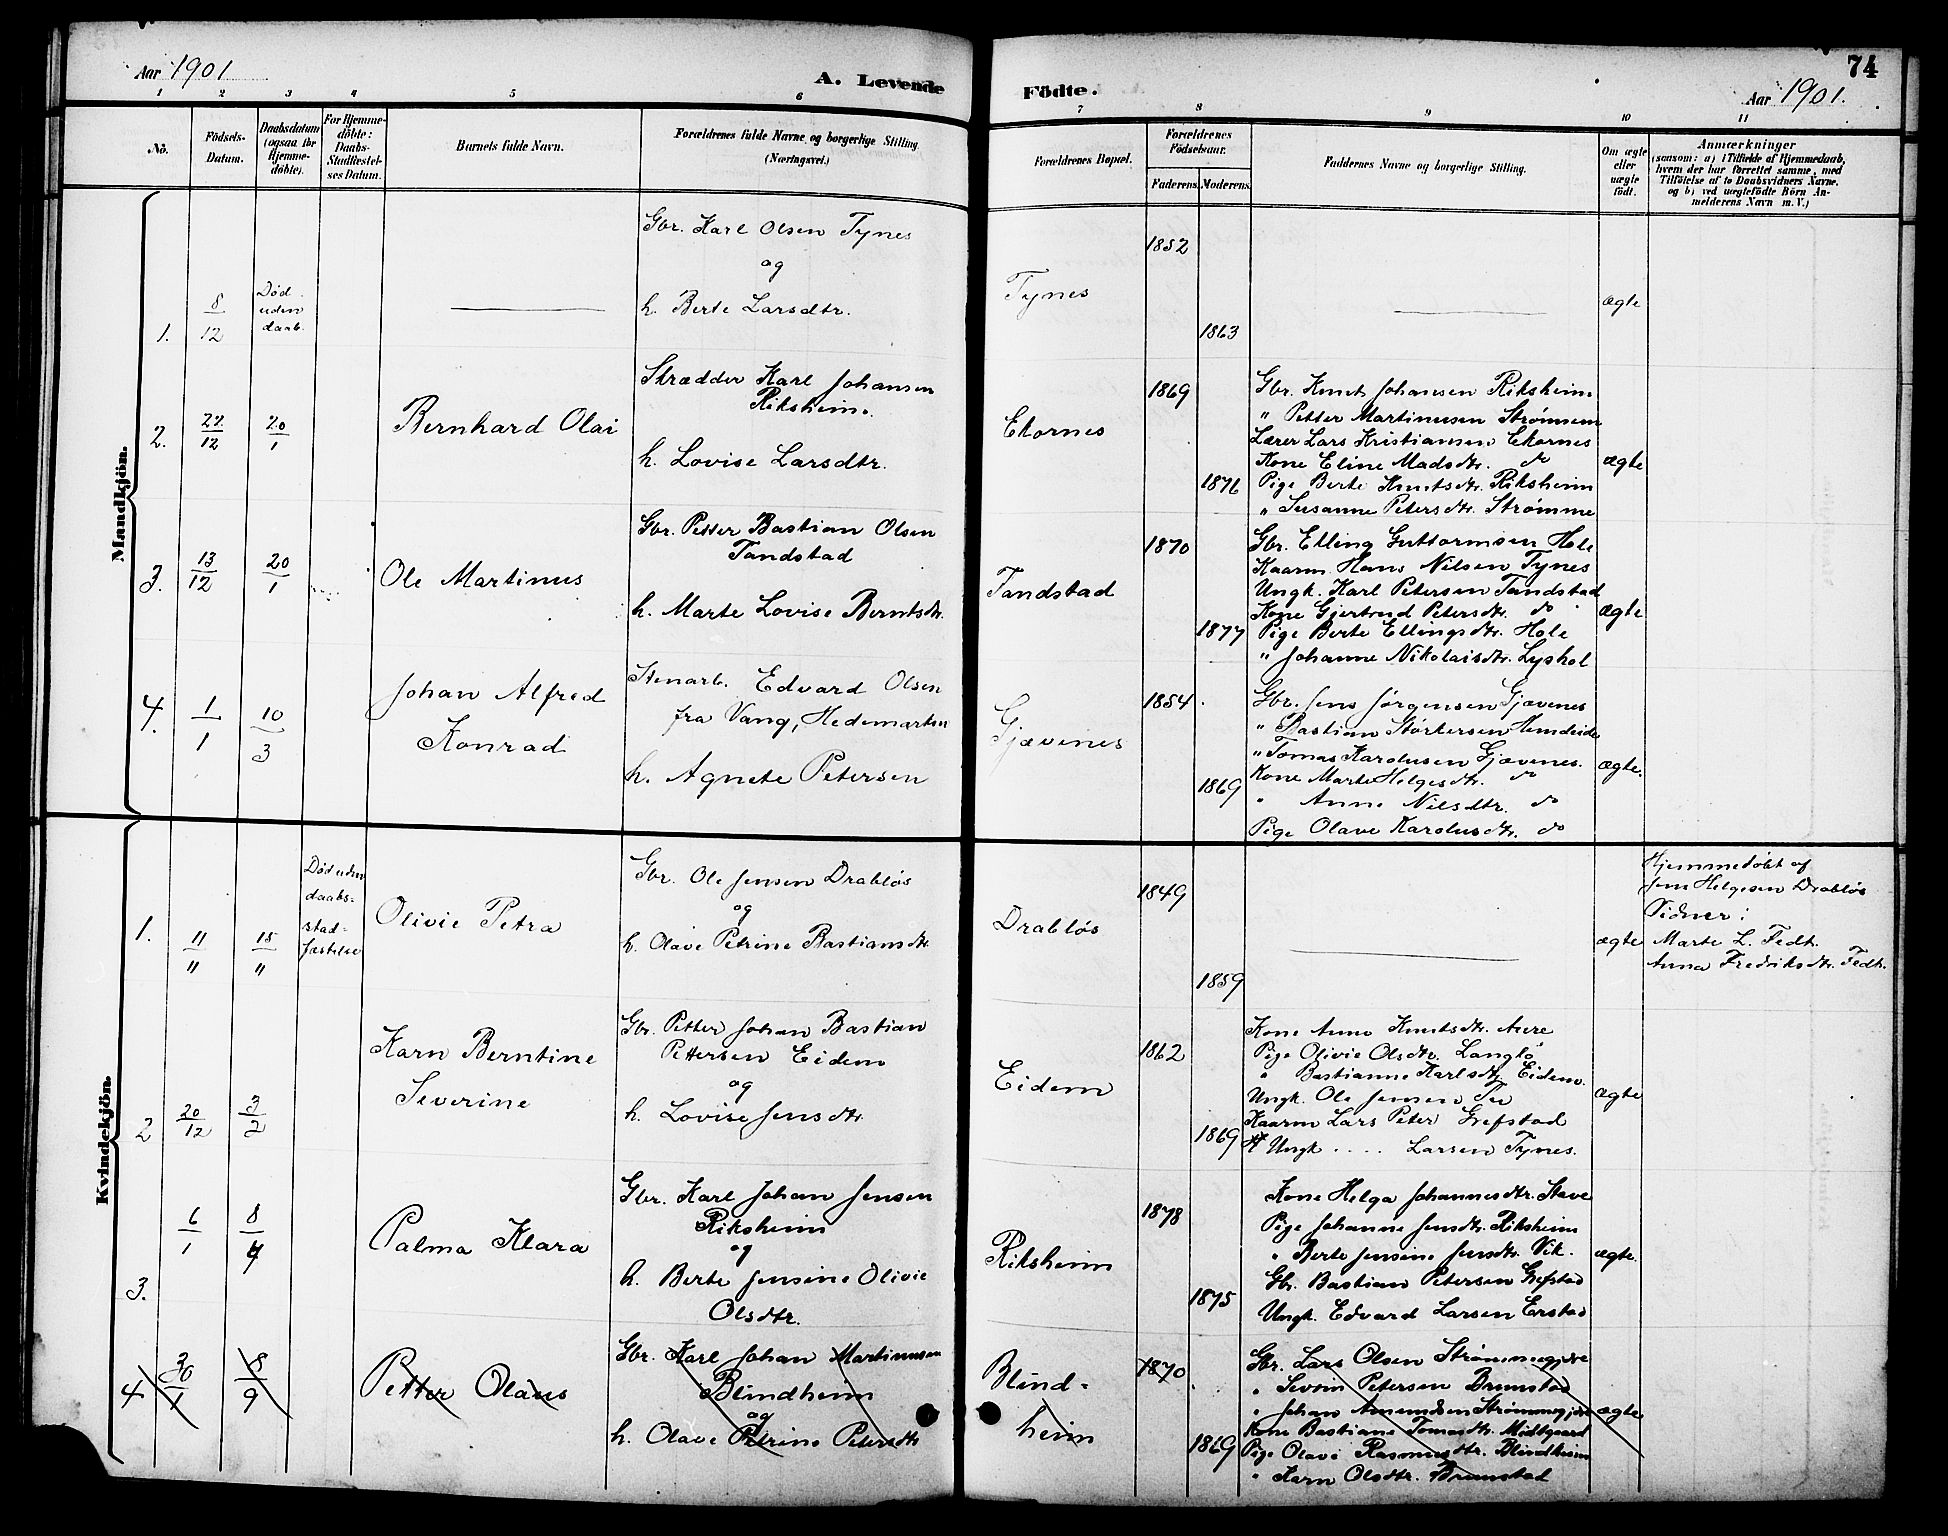 74
Aar 1901
A. Levende
Födte.
Aar 1901.
1 2 3 4 5 6 7 8 9 10 11
No.
Födsels-
Datum.
Daabsdatum
(ogsaa for
Hjemme-
döbte).
For Hjemme-
döbte:
Daabs-
Stadfæstel-
ses Datum.
Barnets fulde Navn.
Forældrenes fulde Navne og borgerlige Stilling
(Næringsvei.)
Forældrenes Bopæl.
Forældrenes
Födselsaar.
Faderens. Moderens.
Faddernes Navne og borgerlige Stilling.
Om ægte
eller
uægte
födt.
Anmærkninger
(saasom: a) i Tilfælde af Hjemmedaab,
hvem der har forrettet samme, med
Tilföielse af to Daabsvidners Navne,
og b) ved uægtefödte Börn An-
melderens Navn m. V.)
Mandkjön.
1.
8/12
Død
uden
daab.
Gbr. Karl Olsen Tynes
og
h. Berte Larsdtr.
Tynes
1852
1863
ægte
2.
22/12
20/1
Bernhard Olai
Skrædder Karl Johansen
Riksheim.
h. Lovise Larsdtr.
Ekornes
1869
1871
Gbr. Knut Johansen Riksheim
" Petter Martinusen Strømmen
Lærer Lars Kristiansen Ekornes
Kone Eline Madsdtr. do
Pige Berte Knutsdtr. Riksheim
" Susanne Petersdtr. Strømme
ægte
3.
13/12
20/1
Ole Martinus
Gbr. Petter Bastian Olsen
Tandstad
h. Marte Lovise Berntsdtr.
Tandstad
1870
1877
Gbr. Elling Guttormsen Hole
Kaarm. Hans Nilsen Tynes
Ungk. Karl Petersen Tandstad
Kone Gjertrud Petersdtr. do
Pige Berte Ellingsdtr. Hole
" Johanne Nikolaisdtr. Lyshol
ægte
4.
1/1
10/3
Johan Alfred
Konrad
Stenarb. Edvard Olsen
fra Vang, Hedemarken
h. Agnete Petersen
Gjævenes
1854
1869
Gbr. Jens Jørgensen Gjævenes
" Bastian Størkersen Hemdeide
" Tomas Karolusen Gjævenes.
Kone Marte Helgesdtr. do
" Anne Nilsdtr. do
Pige Olave Karolusdtr. do
ægte.
Kvindekjön.
1.
11/11
18/11
Død uden
daabs-
stad-
fæstelse
Olivie Petra
Gbr. Ole Jensen Drabløs
og
h. Olave Petrine Bastiansdtr.
Drabløs
1849
1859
ægte
Hjemmedøbt af
Jens Helgesen Drabløs
Vidner:
Marte L. Fedt.
Anna Fredriksdtr. Fedt.
2
20/12
3/2
Karn Berntine
Severine
Gbr. Petter Johan Bastian
Pettersen Eidem
og
h. Lovise Jensdtr
Eidem
1862
1869
Kone Anne Knutsdtr. Aure
Pige Olivie Olsdtr. Langlo
" Bastianne Karlsdtr Eidem.
Ungk. Ole Jensen Tu
Kaarm Lars Peter Grefstad
Ungk .... Larsen Tynes.
ægte
3.
6/1
8/4
Palma Klara
Gbr. Karl Johan Jensen
Riksheim
og
h. Berte Jensine Olivie
Olsdtr.
Riksheim
1878
1875
Kone Helga Johannesdtr. Stave
Pige Johanne Jensdtr. Riksheim
" Berte Jensine Jensdtr. Vik.
Gbr. Bastian Petersen Grefstad
Ungk. Edvard Larsen Erstad
ægte.
4
30/1
8/9
Petter Olaus
Gbr. Karl Johan Martinusen
Blindheim
og
h. Olave Petrine Petersdtr
Blind-
heim
1870
1869
Gbr. Lars Olsen Strømmegjære
" Sevrin Petersen Brunstad
" Johan Amundsen Strømmegjære
Kone Bastiane Tomasdtr. Midtgaard
Pige Olave Rasmusdtr. Blindheim
" Karn Olsdtr. Brunstad
ægte